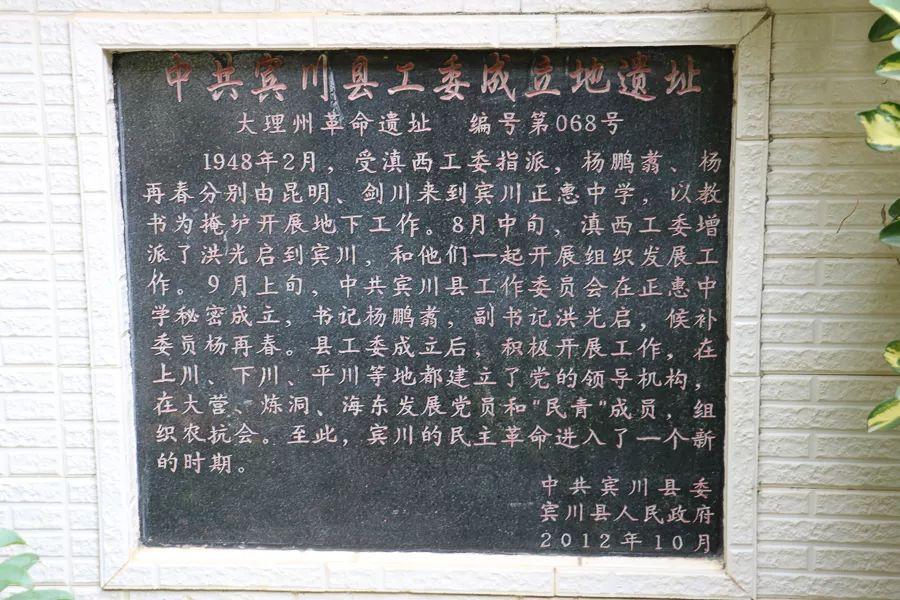 中共宾川县工委成立地遗址
大理州革命遗址 编号第068号
1948年2月，受滇西工委指派，杨鹏翥、杨
再春分别由昆明、剑川来到宾川正惠中学，以教
书为掩护开展地下工作。8月中旬，滇西工委增
派了洪光启到宾川，和他们一起开展组织发展工
作。9月上旬，中共宾川县工作委员会在正惠中
学秘密成立，书记杨鹏翥，副书记洪光启，候补
委员杨再春。县工委成立后，积极开展工作，在
上川、下川、平川等地都建立了党的领导机构，
在大营、炼洞、海东发展党员和“民青”成员，组
织农抗会。至此，宾川的民主革命进入了一个新
的时期。
中共宾川县委
宾川县人民政府
2012年10月